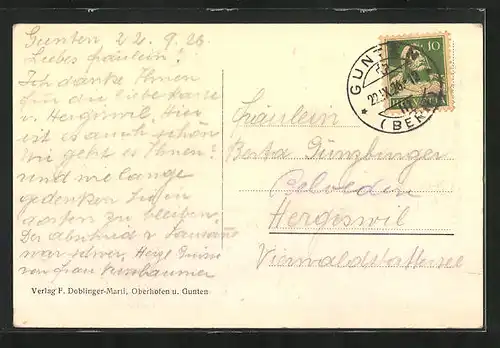 Gunten 22. 9. 26.
Liebes Fräulein!
Ich danke Ihnen
für die liebe Karte
v Hergiswil, Hier
ist es auch schön
Wie geht es Ihnen?
und wie lange
gedenken Sie
dorten zu bleiben.
Der Abschied v Lausanne
war schwer, Herzl Grüsse
von Frau Nussbaumer
Verlag F. Doblinger-Marti, Oberhofen u. Gunten
GUNTEN
22.IX.26
(BERN)
10
HELVETIA
Fräulein
Berta Günzburger
Belvedere
Hergiswil
Vierwaldstattersee